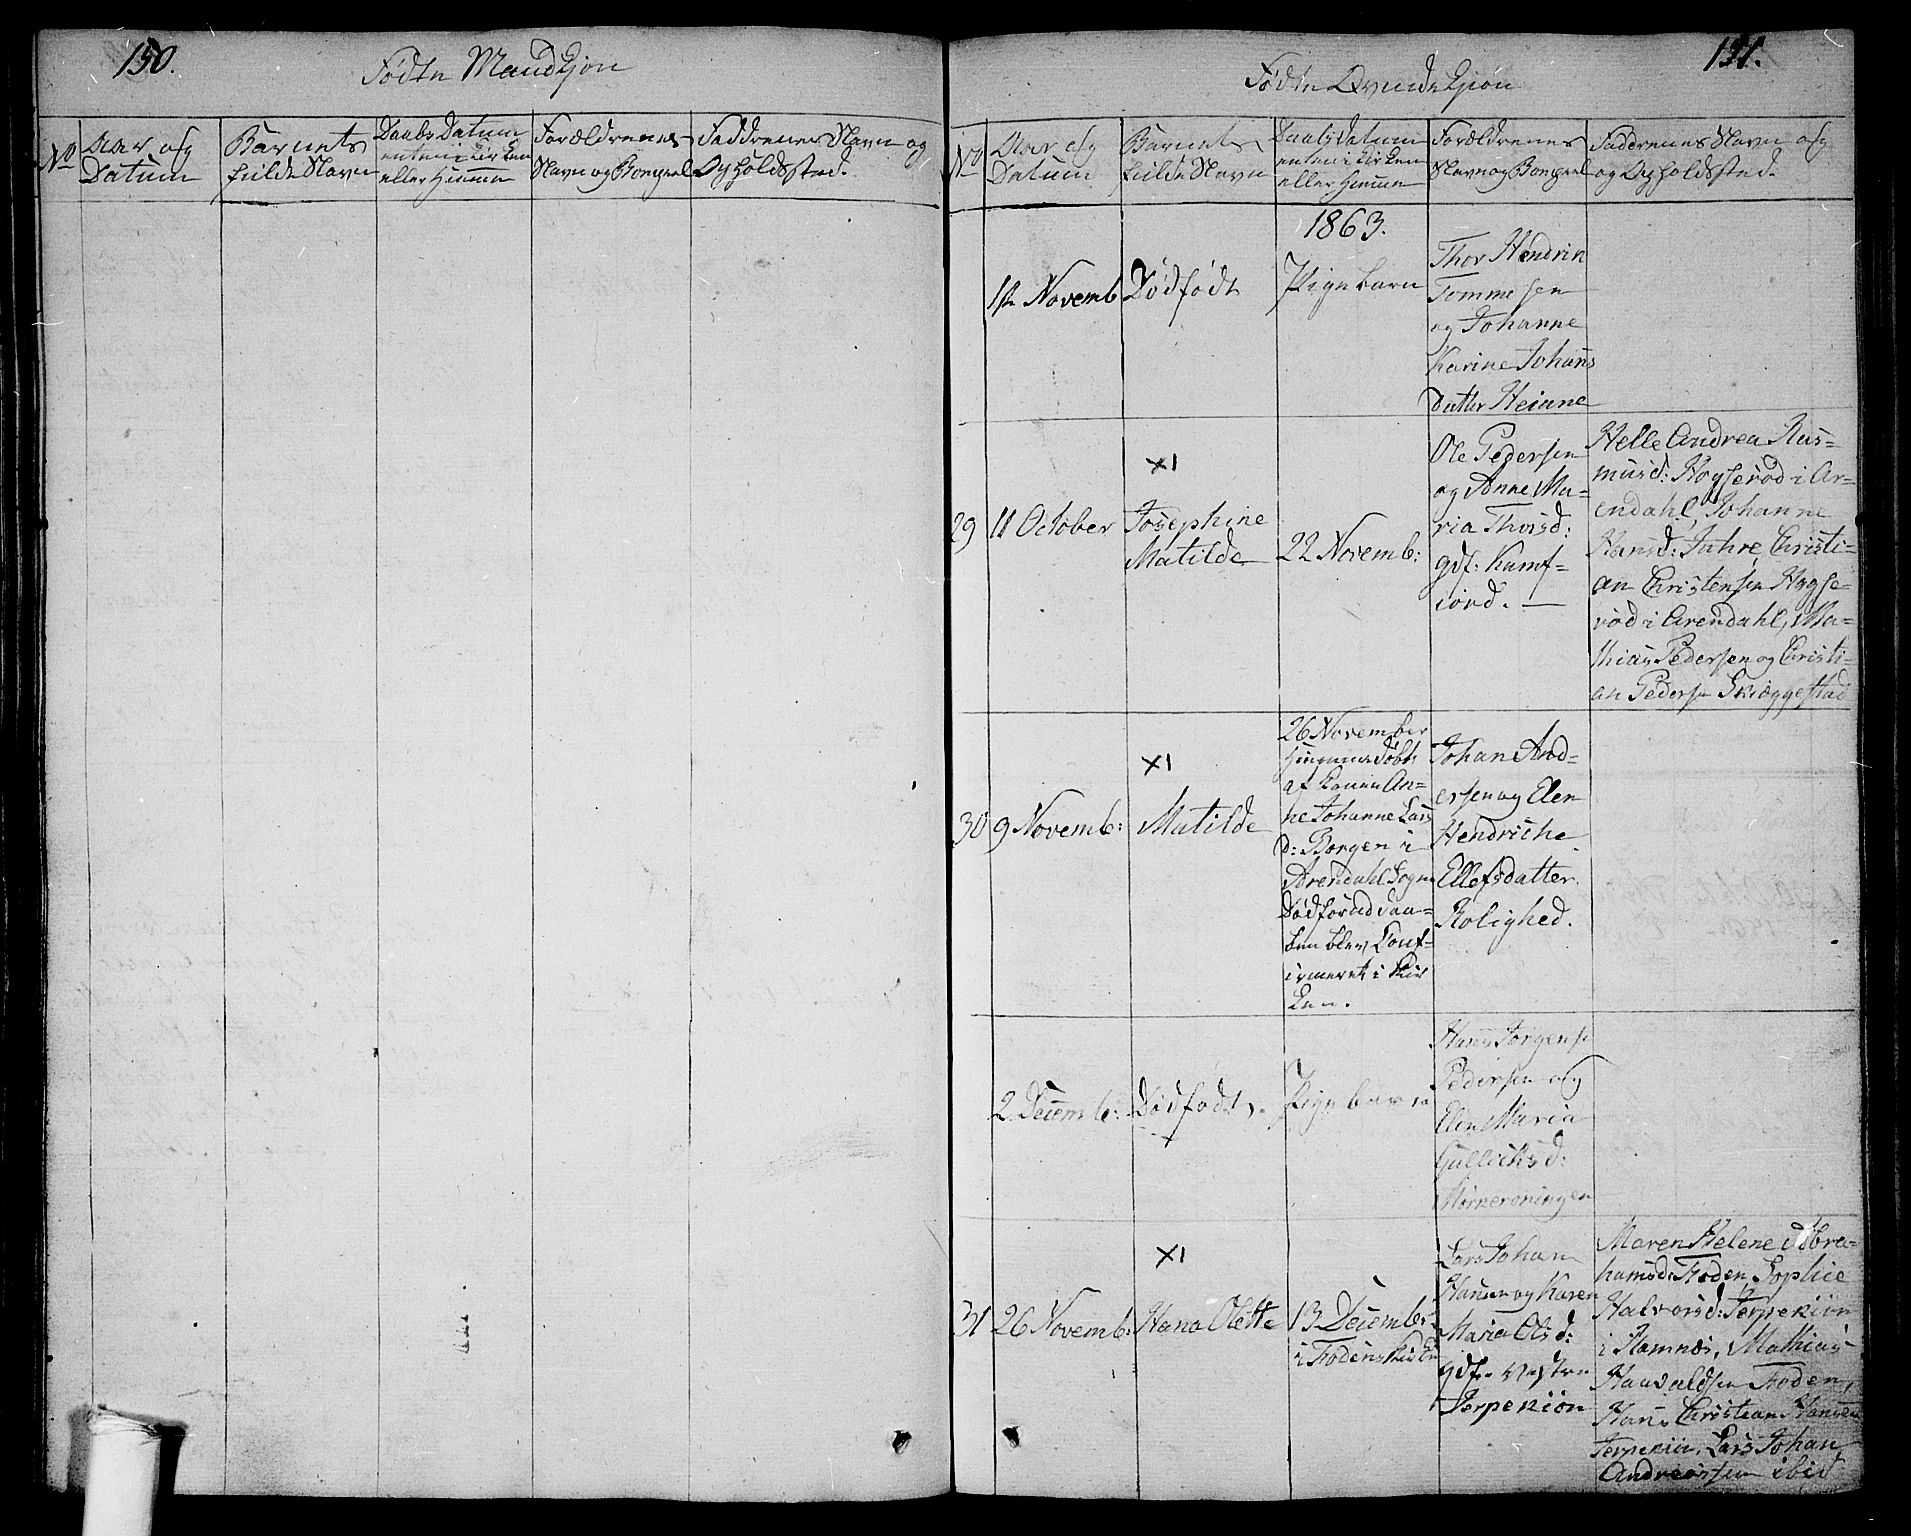 150.
Fødte Mandkjøn
No
Aar og
Datum
Barnets
fulde Navn
Daabs Datum
enten i Kirken
eller Hiemme
Forældrenes
Navn og Bopæel
Faddrenes Navn og
Opholdssted.
151.
Fødte Qvindekjøn
No
Aar og
Datum
Barnets
fulde Navn
Daabs Datum
enten i Kirken
eller Hiemme
Forældrenes
Navn og Bopæel
Faddrenes Navn og
og Opholdssted.
1863.
1ste Novemb
Dødfødt
Pigebarn
Thor Hendrik
Tommesen
og Johanne
Karine Johans
datter Heiane
29
11 October
x1
Josephine
Matilde
22 Novemb:
Ole Pedersen
og Anne Ma-
ria Thorisd:
gdf: Kamf-
iord. —
Helle Andrea Ras-
musd: Hogserød i Ar-
endahl, Johanne
Hansd: Jahre, Christi-
an Christensen Hogse-
rød i Arendahl, Ma-
thias Pedersen og Christi-
an Pedersen Skiæggestad
30
9 Novemb:
x1
Matilde
26 November
Hiemmedøbt
af Konen An-
ne Johanne Lars
d: Borgen i
Arendahl Sogn
Død forend daa-
ben blev Conf-
irmeret i Kir
ken.
Johan And-
ersen og Elen
Hendriche
Ellefsdatter
Rolighed.
2 Decemb:
Dødfødt.
Pigebarn
Hans Jørgen
Pedersen og
Elen Maria
Gullichsd:
31
26 Novemb:
x1
Hana Olette
13 Decemb:
i Fodens Kirke
Lars Johan
Hansen og Karen
Maria Olsd:
gdf. Vestre
Jerpekiøn
Maren Helene Abra-
hamsd: Foden, Sophie
Halvorsd: Jerpekiøn
i Ramnæs, Mathias
Haavaldsen Foden,
Hans Christian Hansen
Jerpekiøn, Lars Johan
Andreassen ibid